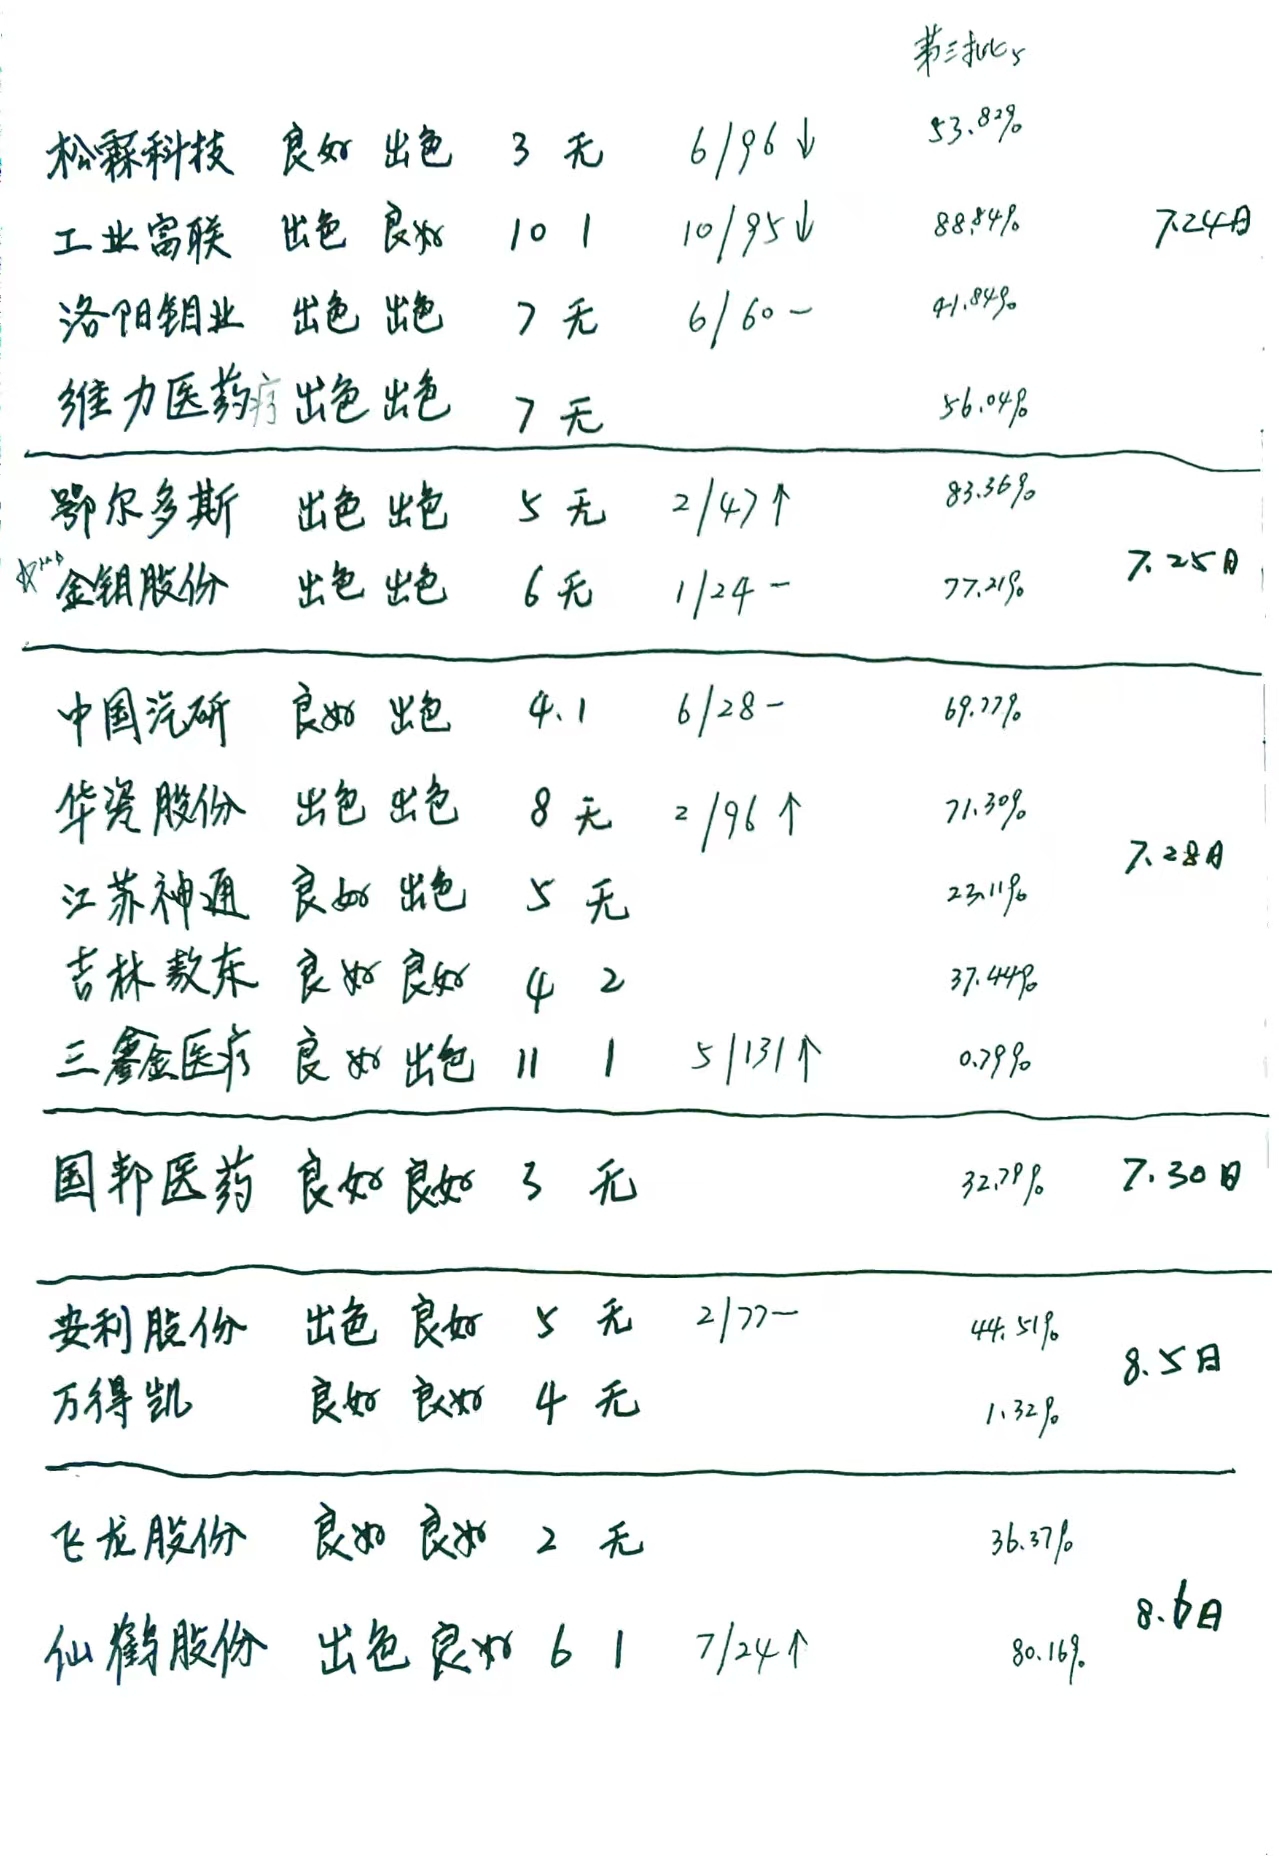 第三批5
松霖科技 良好 出色 3 无 6/96↓ 53.82%
工业富联 出色 良好 10 1 10/95↓ 88.84% 7.24日
洛阳钼业 出色 出色 7 无 6/60— 41.84%
维力医药疗 出色 出色 7 无 56.04%
鄂尔多斯 出色 出色 5 无 2/47↑ 83.36%
☆ 金钼股份 出色 出色 6 无 1/24— 77.21% 7.25日
中国汽研 良好 出色 4.1 6/28— 69.77%
华瓷股份 出色 出色 8 无 2/96↑ 71.30% 7.28日
江苏神通 良好 出色 5 无 23.11%
吉林敖东 良好 良好 4 2 37.44%
三鑫医疗 良好 出色 11 1 5/131↑ 0.79%
国邦医药 良好 良好 3 无 32.79% 7.30日
安利股份 出色 良好 5 无 2/77— 44.51% 8.5日
万得凯 良好 良好 4 无 1.32%
飞龙股份 良好 良好 2 无 36.37%
仙鹤股份 出色 良好 6 1 7/24↑ 80.16% 8.6日